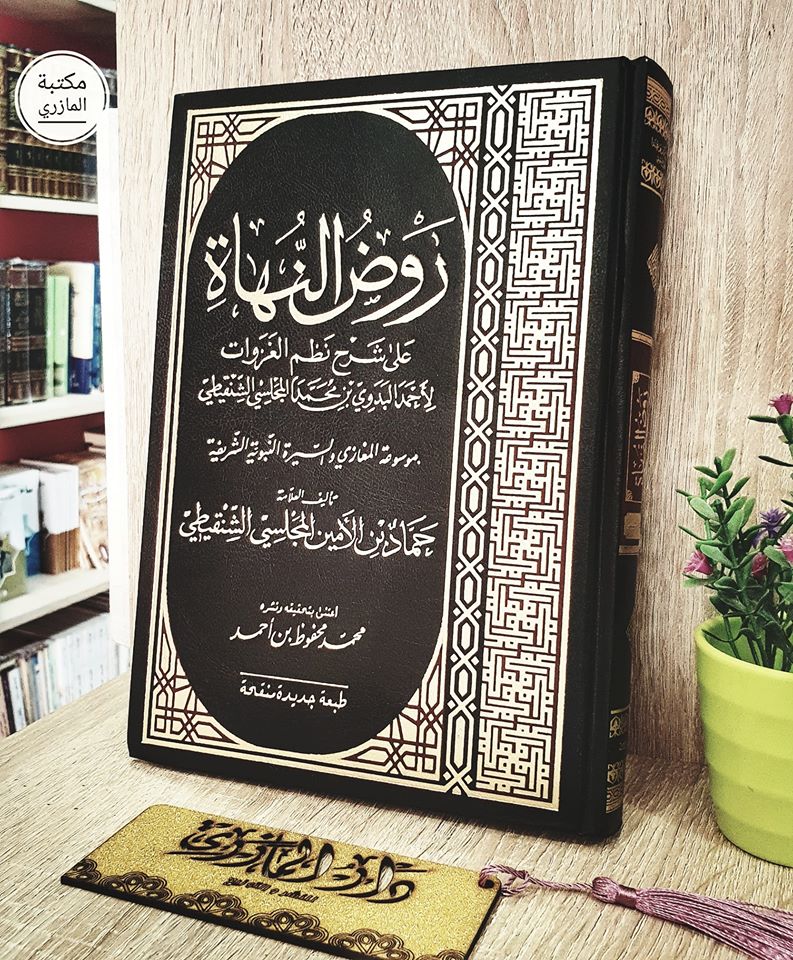 مكتبة
المازري
رَوْضُ النُّهَاةِ
عَلَى شَرْحِ نَظْمِ الغَزَوَاتِ
لِأَحْمَدَ البَدَوِيِّ بْنِ مُحَمَّدَا المَجْلِسِيِّ الشِّنْقِيطِيِّ
موسوعة المغازي والسيرة النبوية الشريفة
تأليف العلامة
حَمَّادُ بْنُ الأَمِينِ المَجْلِسِيِّ الشِّنْقِيطِيِّ
اعتنى بتحقيقه ونشره
محمد محفوظ بن أحمد
طبعة جديدة منقحة
روض النهاة
دار المازري
للنشر والتوزيع